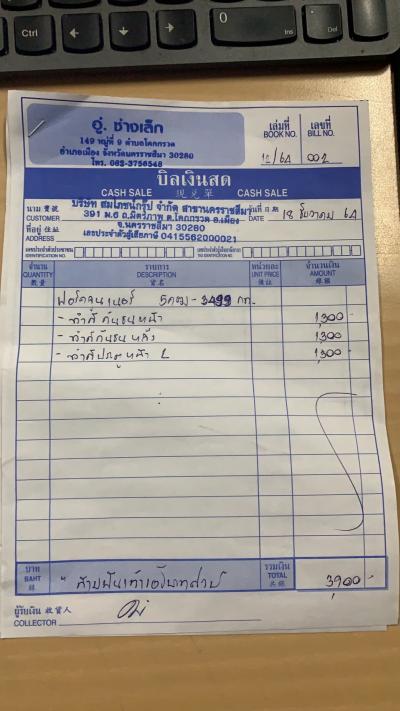 Ctrl
0
Ins
Del
อู่ ช่างเล็ก
149 หมู่ที่ 9 ตำบลโคกกรวด
อำเภอเมือง จังหวัดนครราชสีมา 30280
โทร. 062-3756548
เล่มที่ เลขที่
BOOK NO. BILL NO.
12/64 002
บิลเงินสด
CASH SALE 現兑單 CASH SALE
นาม 寶號
CUSTOMER
บริษัท สมโภชน์กรุ๊ป จำกัด สาขานครราชสีมา
391 ม.6 ถ.มิตรภาพ ต.โคกกรวด อ.เมือง
จ.นครราชสีมา 30280
เลขประจำตัวผู้เสียภาษี 0415562000021
วันที่ 日期
DATE 18 ธันวาคม 64
ที่อยู่ 住址
ADDRESS
IDENTIFICATION NO.
จำนวน รายการ หน่วยละ จำนวนเงิน
QUANTITY DESCRIPTION UNIT PRICE AMOUNT
數量 貨名 價註 銀額
ฟอร์จูนเนอร์ - 3499 กท.
- ทำสีกันชนหน้า 1,300-
- ทำสีกันชนหลัง 1,300-
- ทำสีประตูหน้า L 1,300-
บาท
BAHT
銖
สามพันเก้าร้อยบาทถ้วน
รวมเงิน
TOTAL
共銀
3,900-
ผู้รับเงิน 收貨人
COLLECTOR